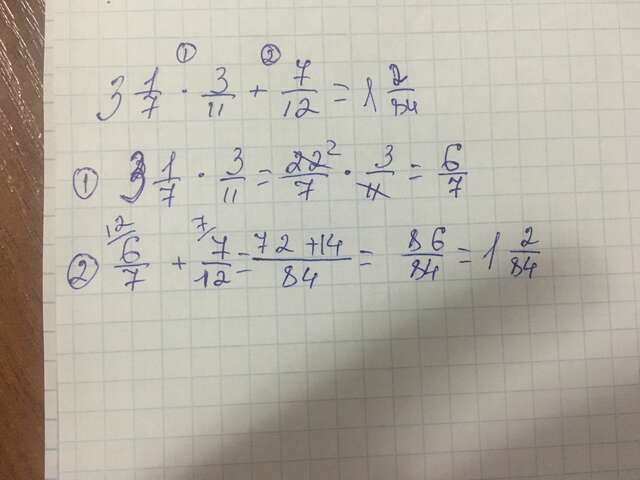 ① ②
3 1/7 · 3/11 + 7/12 = 1 2/84
① 3 1/7 · 3/11 = 22²/7 · 3/11 = 6/7
② 12/ 6/7 + 7/ 7/12 = 72+14/84 = 86/84 = 1 2/84